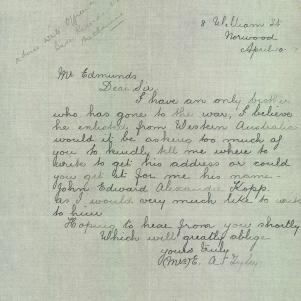 8 William St
Norwood
April 10
Mr Edmunds
Dear Sir
I have an only brother
who has gone to the war, I believe
he enlisted from Western Australia
would it be asking too much of
you to kindly tell me where to
write to get his address or could
you get it for me his name -
John Edward Alexander Kopp.
as I would very much like to write
to him
Hoping to hear from you shortly
Which will greatly oblige
yours truly
(Mrs) E. A.